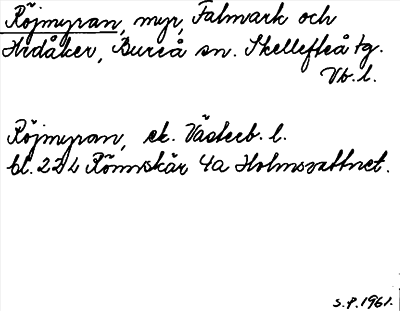 Röjmyran, myr, Falmark och
Hedåker, Bureå sn. Skellefteå tg.
Vb. l.
Röjmyran, ek. Västerb. l.
bl. 22 L Rönnskär 4a Holmsvattnet.
S.P. 1961.